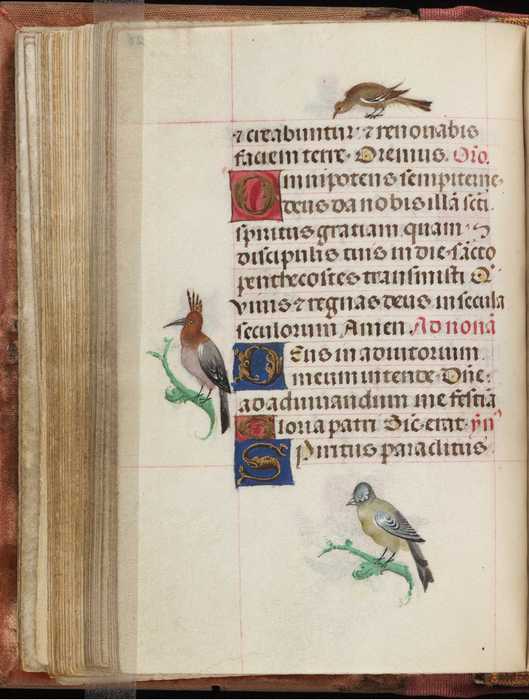 ⁊ creabuntur ⁊ renouabis
faciem terre. Oremus. Oro.
Omnipotens sempiterne
deus da nobis illā scti
spiritus gratiam quam
discipulis tuis in die sācto
penthecostes transmisti Q̄
viuis ⁊ regnas deus in secula
seculorum Amen Ad nonā
Deus in adiutorium
meum intende Dn̄e
ad adiuuandum me festīa
Gloria patri Sic erat ẏn̄
Spiritus paraclitus